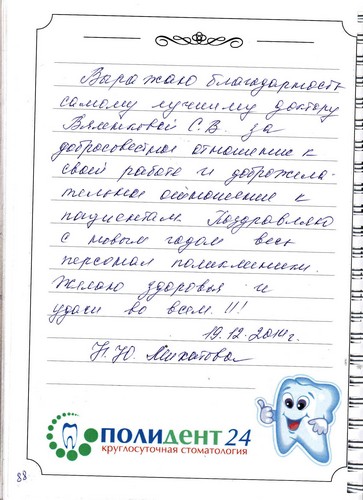 Выражаю благодарность
самому лучшему доктору
Вяленковой С.В. за
добросовестное отношение к
своей работе и доброжела-
тельное отношение к
пациентам. Поздравляю
с новым годом весь
персонал поликлиники.
Желаю здоровья и
удачи во всем!!!
19.12.2014г.
Н.Ю.
ПОЛИДЕНТ 24
круглосуточная стоматология
88